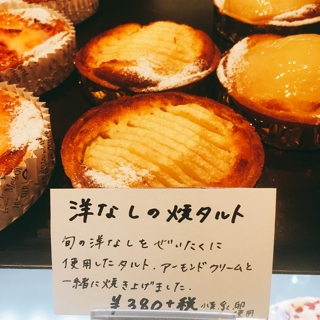 洋なしの焼タルト
旬の洋なしをぜいたくに
使用したタルト、アーモンドクリームと
一緒に焼き上げました。
¥380+税 小麦、乳、卵
使用